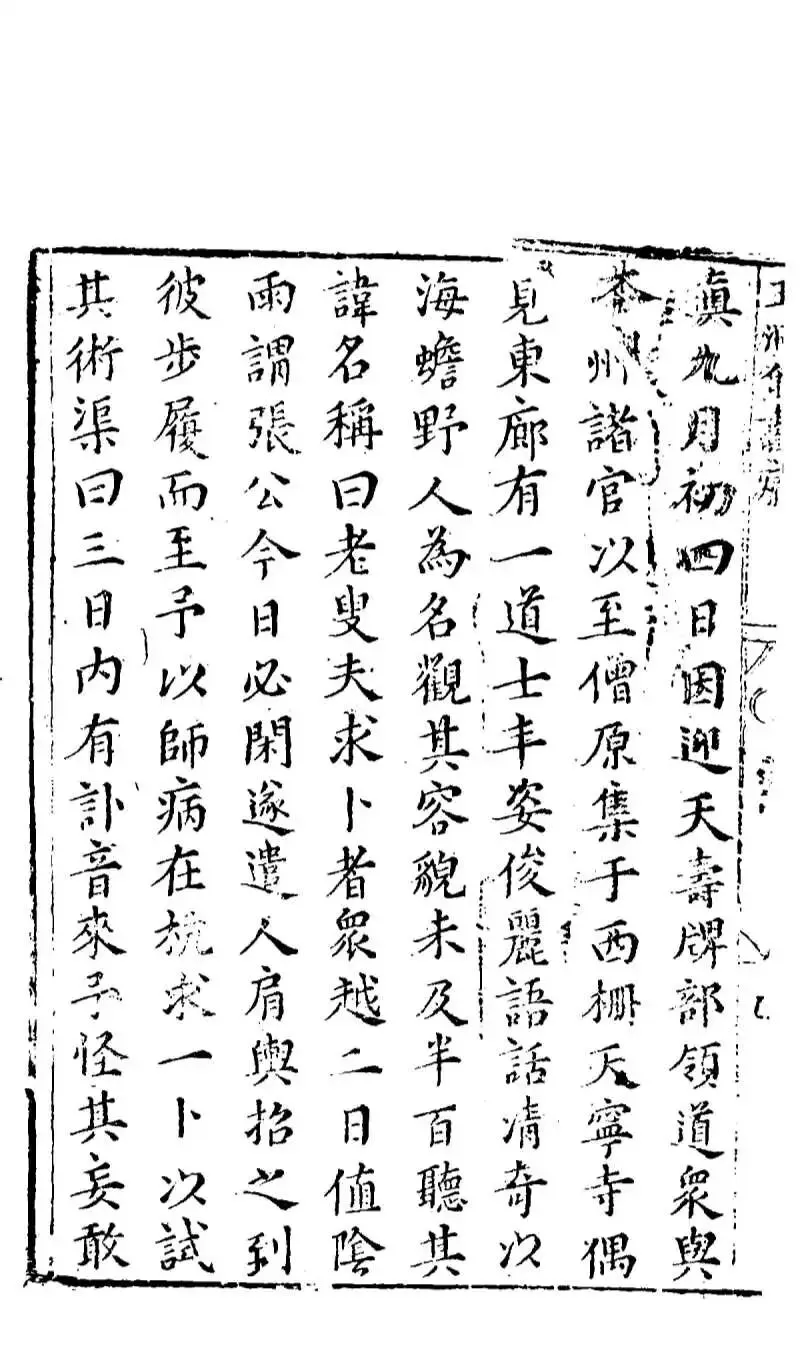 真九月初四日因迎天壽牌部領道衆與
本州諸官以至僧原集于西柵天寧寺偶
見東廊有一道士丰姿俊麗語話清奇以
海蟾野人為名觀其容貌未及半百聽其
諱名稱曰老叟夫求卜者衆越二日值陰
雨謂張公今日必閑遂遣人肩輿抬之到
彼步履而至予以師病在㡳求一卜以試
其術渠曰三日内有訃音來予怪其妄敢